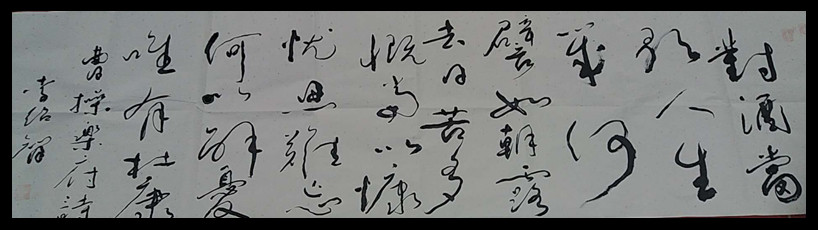 對酒當
歌人生
幾何
譬如朝露
去日苦多
慨當以慷
忧思難忘
何以解憂
唯有杜康
曹操樂府詩
李